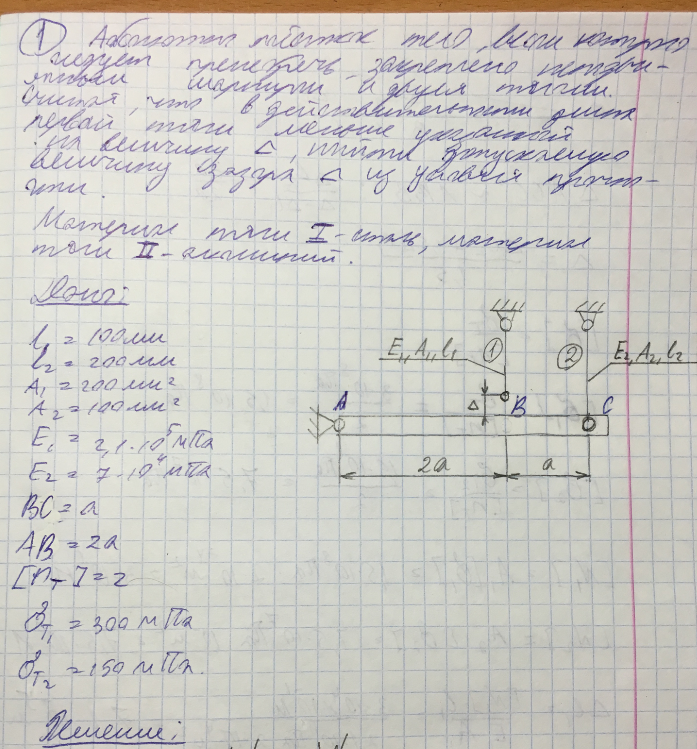 ① Абсолютно жёсткое тело, весом которого
следует пренебречь, закреплено
шарнирно и двумя тягами.
Считая, что в действительности длина
первой тяги меньше указанной
на величину Δ, найти допускаемую
величину зазора Δ из условия прочно-
сти.
Материал тяги I - сталь, материал
тяги II - алюминий.
Дано:
l₁ = 100мм
l₂ = 200мм
A₁ = 200мм²
A₂ = 100мм²
E₁ = 2,1·10⁵ мПа
E₂ = 7·10⁴ мПа
BC = a
AB = 2a
[nт] = 2
σт₁ = 300 мПа
σт₂ = 150 мПа.
Решение:
E₁, A₁, l₁
①
②
E₂, A₂, l₂
A
Δ
B
C
2a
a